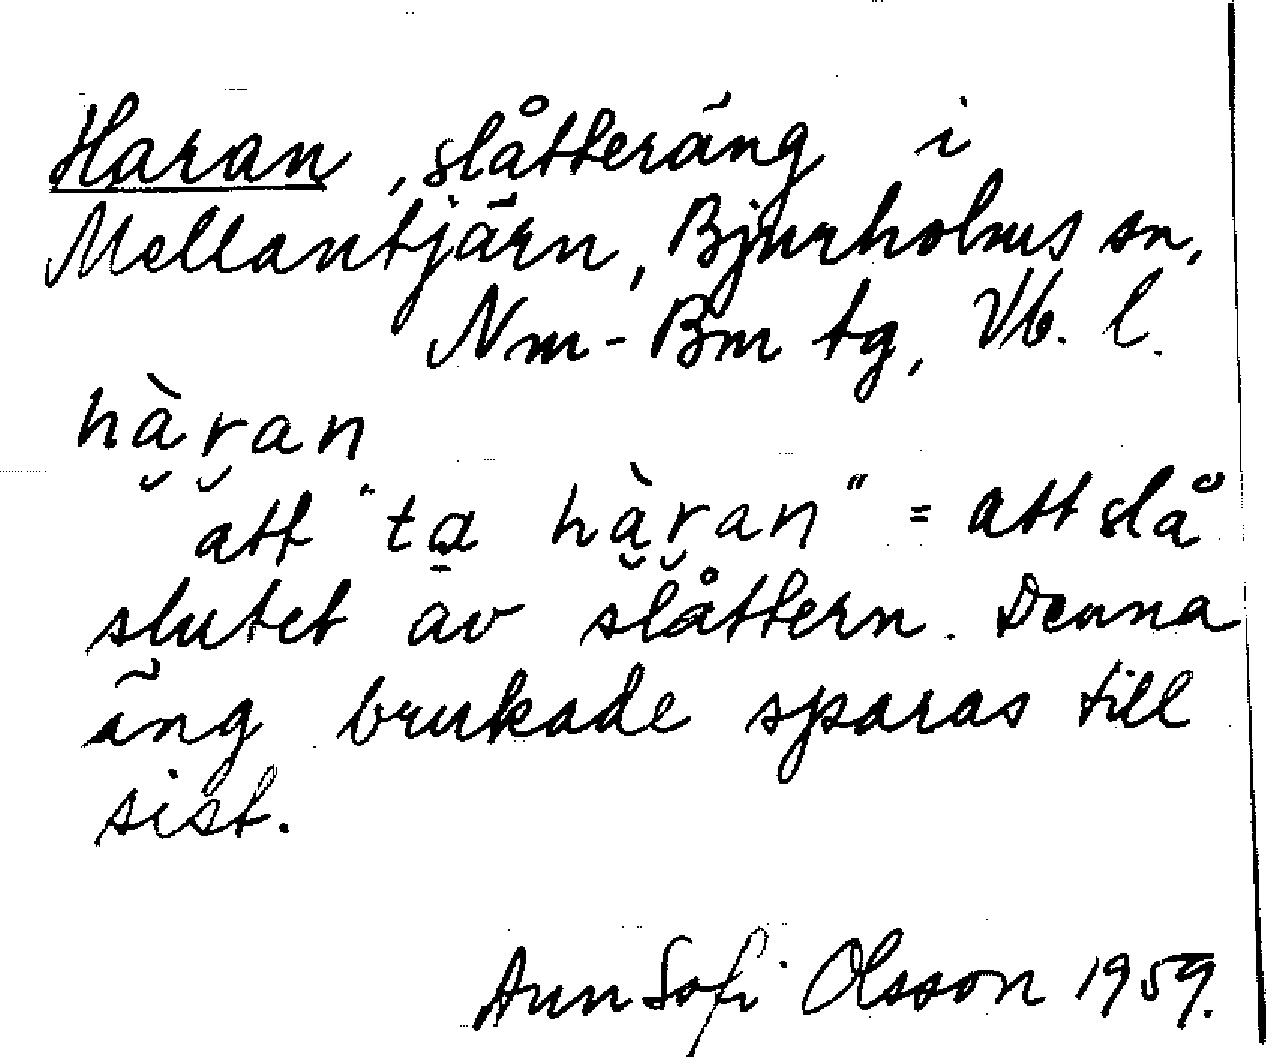 Haran, slåtteräng i
Mellantjärn, Bjurholms sn,
Nm-Bm tg, Vb. l.
hà̮r̮an
att "ta̱ hà̮r̮an" = att slå
slutet av slåttern. Denna
äng brukade sparas till
sist.
Ann Sofi Olsson 1959.